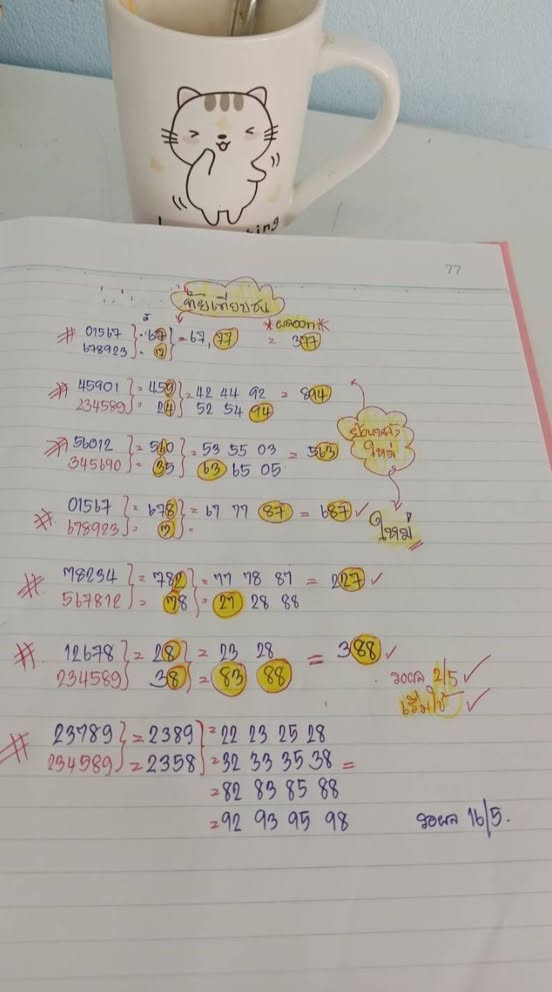 77
* ผลออก *
# 01567 } · 67 } = 67, 77 = 377
678923 } · 17
# 45901 } = 459 } = 42 44 92 = 894
234589 } = 24 } 52 54 94
# 56012 } = 560 } = 53 55 03 = 563
345690 } = 35 } 63 65 05
ใหม่
# 01567 } = 678 } = 67 77 87 = 687 ✓
678923 } = 17 } =
ใหม่
# 78234 } = 782 } = 77 78 87 = 227 ✓
567812 } = 78 } = 27 28 88
# 12678 } = 28 } = 23 28 = 388 ✓
234589 } 38 } = 83 88
รอผล 2/5 ✓
เริ่มใช้ ✓
# 23789 } = 2389 } = 22 23 25 28
234589 } = 2358 } = 32 33 35 38 =
= 82 83 85 88
= 92 93 95 98 รอผล 16/5.